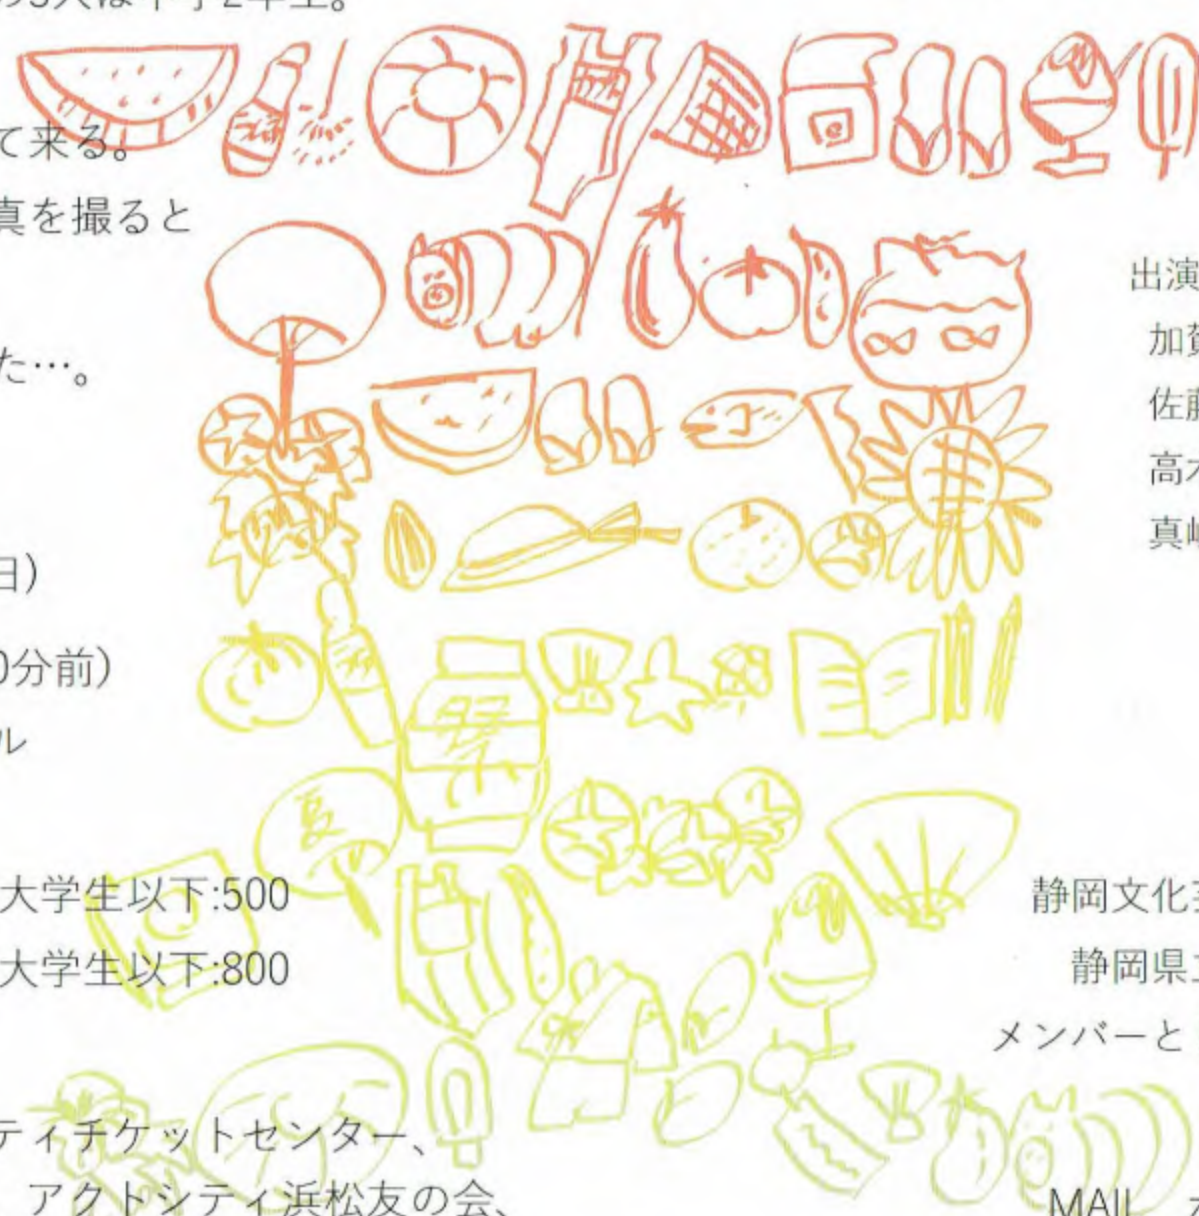 の3人は中学2年生。
て来る。
真を撮ると
た…。
日)
0分前)
ル
夏
大学生以下:500
大学生以下:800
ティチケットセンター、
アクトシティ浜松友の会、
出演
加
佐
高
真
静岡文化
静岡県
メンバーと
MAIL